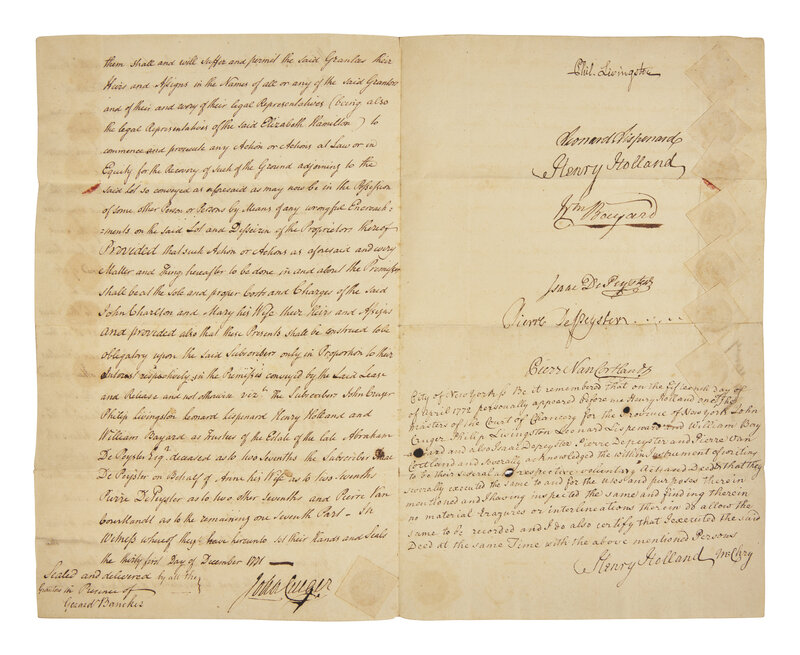 them shall and will Suffer and permit the said Grantees their
Heirs and Assigns in the Names of all or any of the said Grantors
and of their and every of their legal Representatives (being also
the legal Representatives of the said Elizabeth Hamilton) to
commence and prosecute any Action or Actions at Law or in
Equity for the Recovery of such of the Ground adjoining to the
said Lot so conveyed as aforesaid as may now be in the Possession
of some other Person or Persons by Means of any wrongful Encroach-
-ments on the said Lot and Disseizen of the Proprietors thereof
Provided that such Action or Actions as aforesaid and every
Matter and Thing hereafter to be done in and about the Premisses
shall be at the sole and proper Costs and Charges of the said
John Charlton and Mary his Wife their Heirs and Assigns
And provided also that these Presents shall be construed to be
obligatory upon the said Subscribers only in Proportion to their
Interest respectively in the Premisses conveyed by the said Lease
and Release and not otherwise vizt. the Subscriber John Cruger
Philip Livingston Leonard Lispenard Henry Holland and
William Bayard as Trustees of the Estate of the late Abraham
De Peyster Esqr. deceased as to two Sevenths the Subscriber Isaac
De Peyster on Behalf of Anne his Wife as to two Sevenths
Pierre De Peyster as to two other Sevenths and Pierre Van
Courtlandt as to the remaining one Seventh Part - In
Witness whereof they have hereunto set their Hands and Seals
the thirty first Day of December 1771
Sealed and delivered by all the
Grantors in Presence of
Gerard Bancker
John Cruger
Phil. Livingston
Leonard Lispenard
Henry Holland
Wm Bayard
Isaac De Peyster
Pierre De Peyster
Pierre Van Cortlandt
City of New York ss Be it remembered that on the fifteenth day of
of April 1772 personally appeared before me Henry Holland one of the
Masters of the Court of Chancery for the Province of New York John
Cruger Philip Livingston Leonard Lispenard and William Bay
ard and also Isaac Depeyster Pierre Depeyster and Pierre Van
Cortland and severally acknowledged the within Instrument of writing
to be their several and respective voluntary Acts and Deeds that they
severally executed the same to and for the uses and purposes therein
mentioned and I having inspected the same and finding therein
no material Erazures or interlineations therein do allow the
same to be recorded and I do also certify that I executed the said
Deed at the same Time with the above mentioned Persons
Henry Holland